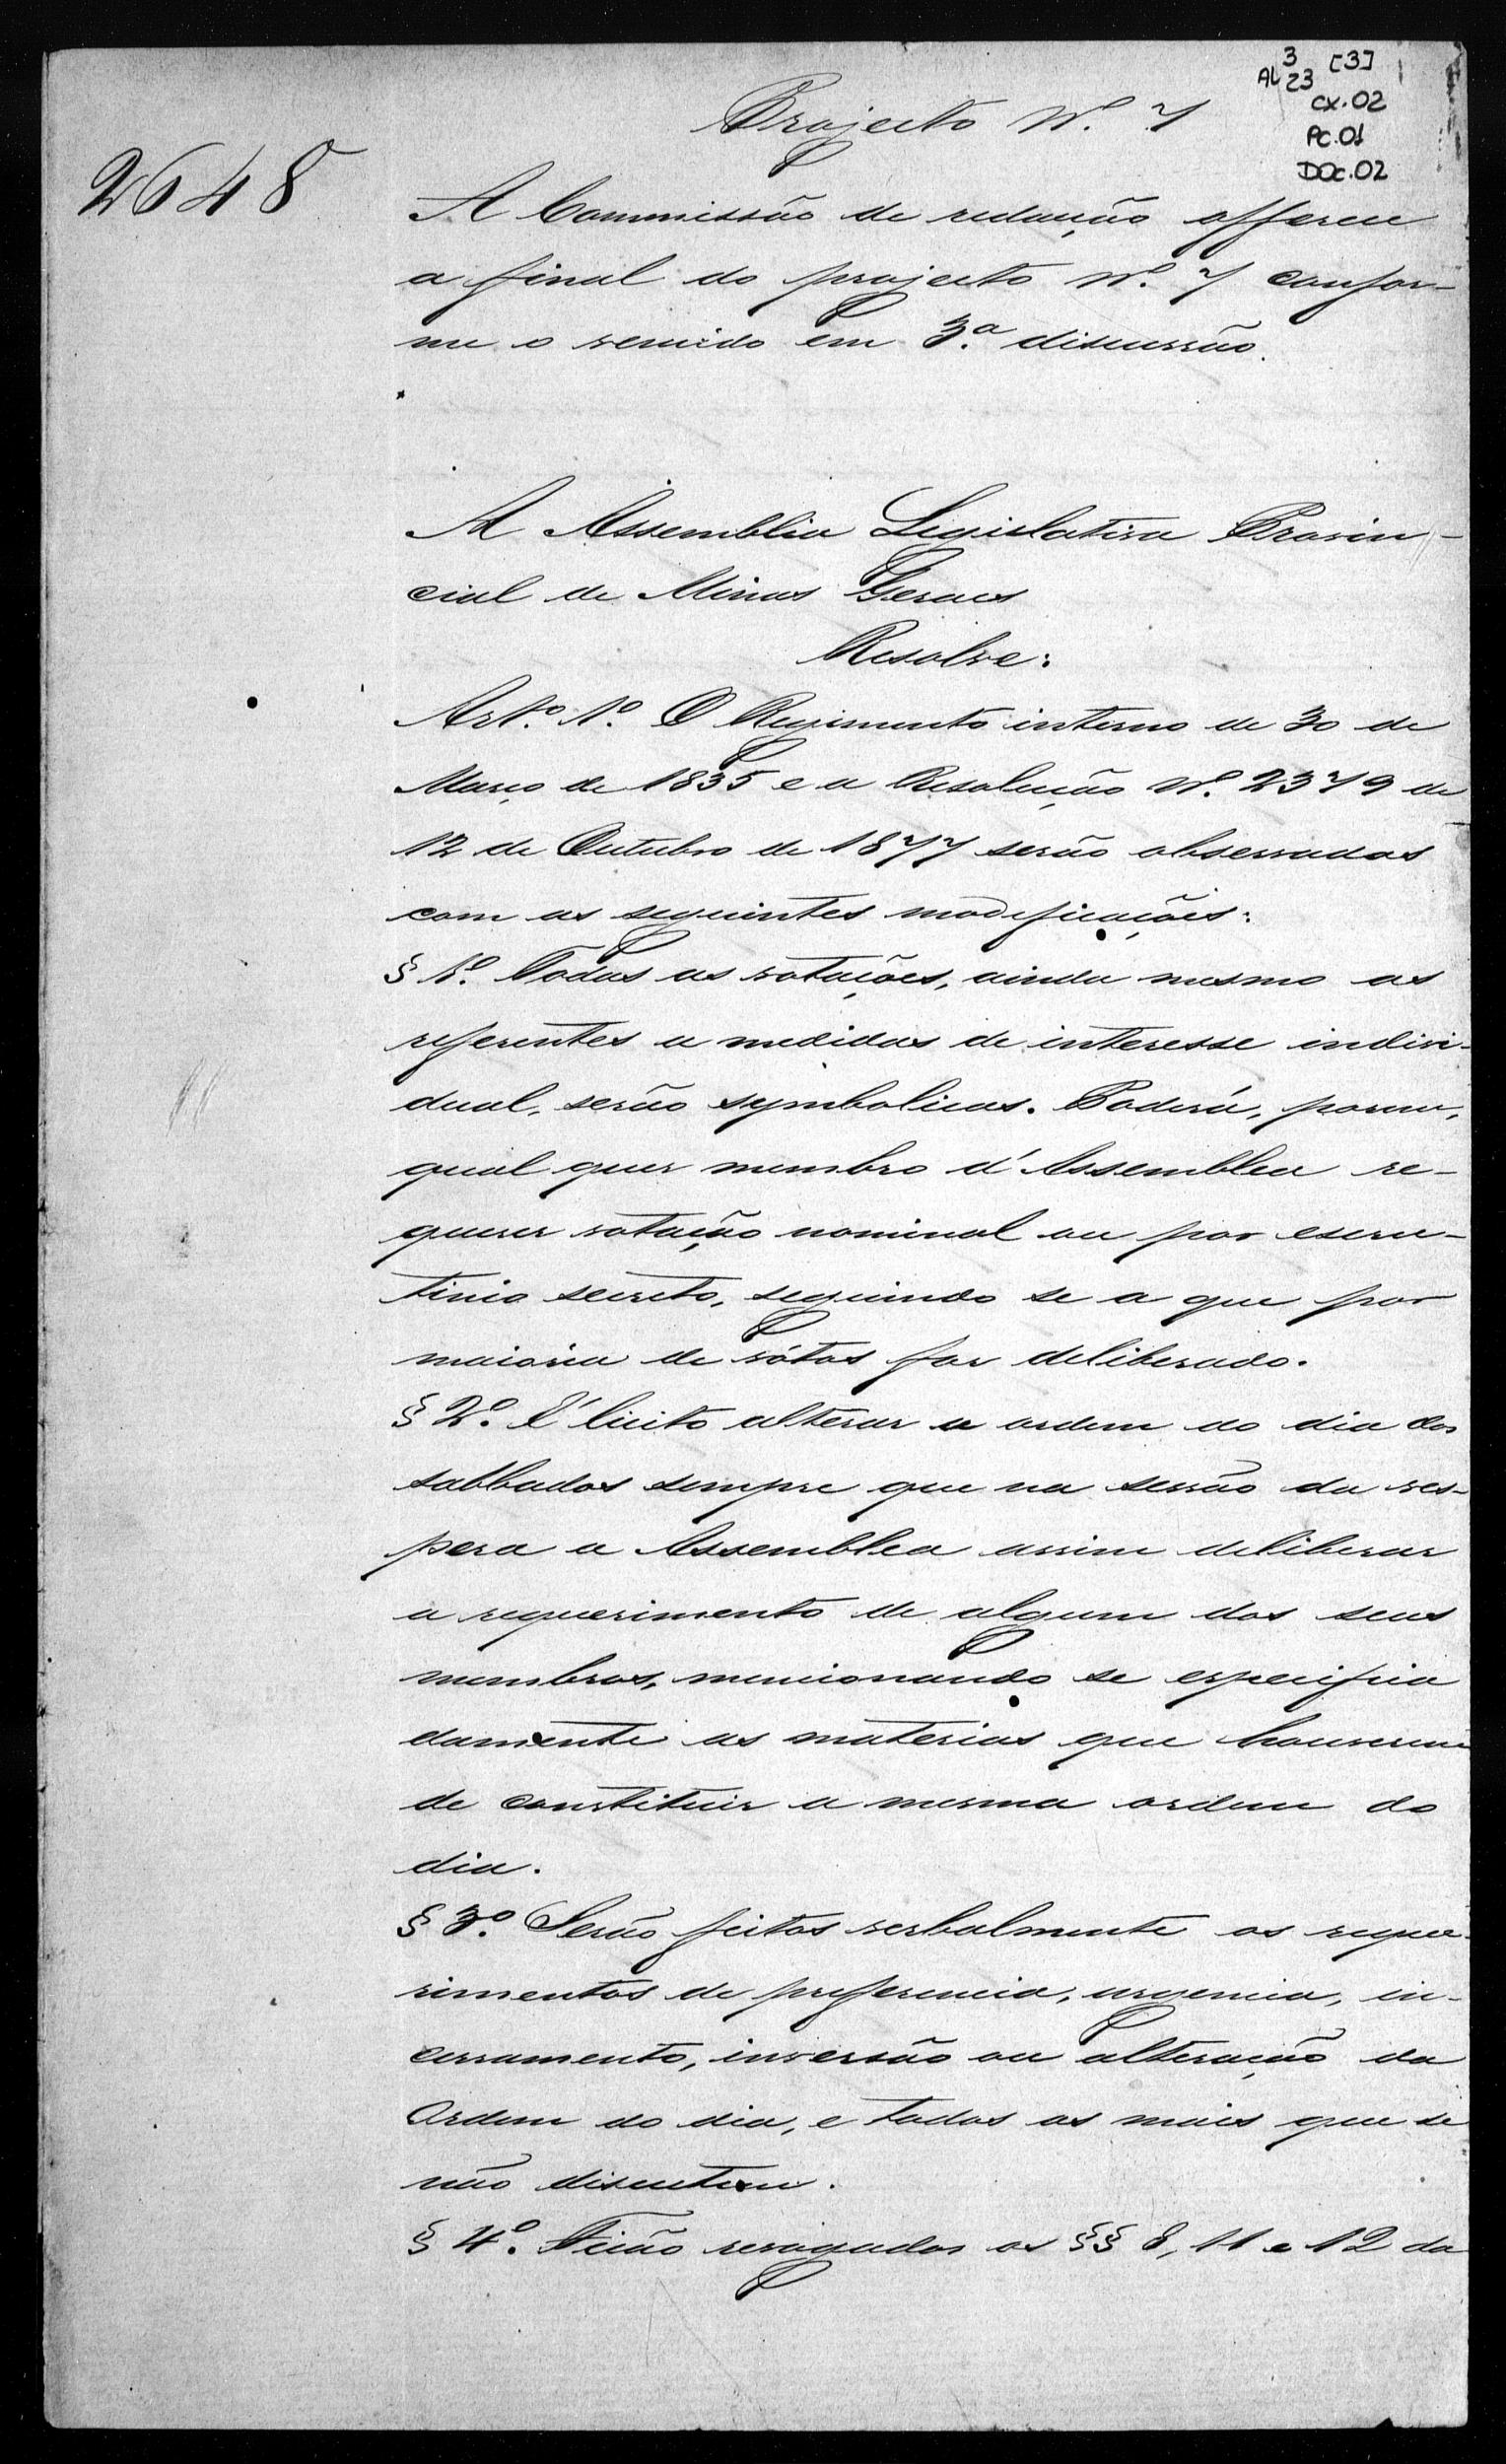 3 [3]
AL 23
cx.02
Pc.01
DOc.02
Projecto Nº. 7
2648
A Commissão de redacção offerece
a final do projecto Nº. 7 confor-
me o vencido em 3.ª discussão.
A Assemblea Legislativa Provin-
cial de Minas Geraes
Resolve:
Artº. 1º. O Regimento interno de 30 de
Março de 1835 e a Resolução Nº. 2379 de
12 de Outubro de 1877 serão observados
com as seguintes modificações:
§ 1º. Todas as votações, ainda mesmo as
referentes a medidas de interesse indivi-
dual, serão symbolicas. Poderá, porem,
qual quer membro d'Assemblea re-
querer votação nominal ou por escru-
tinio secreto, seguindo se a que por
maioria de vótos for deliberado.
§ 2º. É licito alterar a ordem do dia dos
sabbados sempre que na sessão da ves-
pera a Assemblea assim deliberar
a requerimento de algum dos seus
membros, mencionando se especifica
damente as materias que houverem
de constituir a mesma ordem do
dia.
§ 3º. Serão feitos verbalmente os reque-
rimentos de preferencia, urgencia, in-
cerramento, inversão ou alteração da
Ordem do dia, e todos os mais que se
não discutem.
§ 4º. Ficão revogados os §§ 8, 11 e 12 do